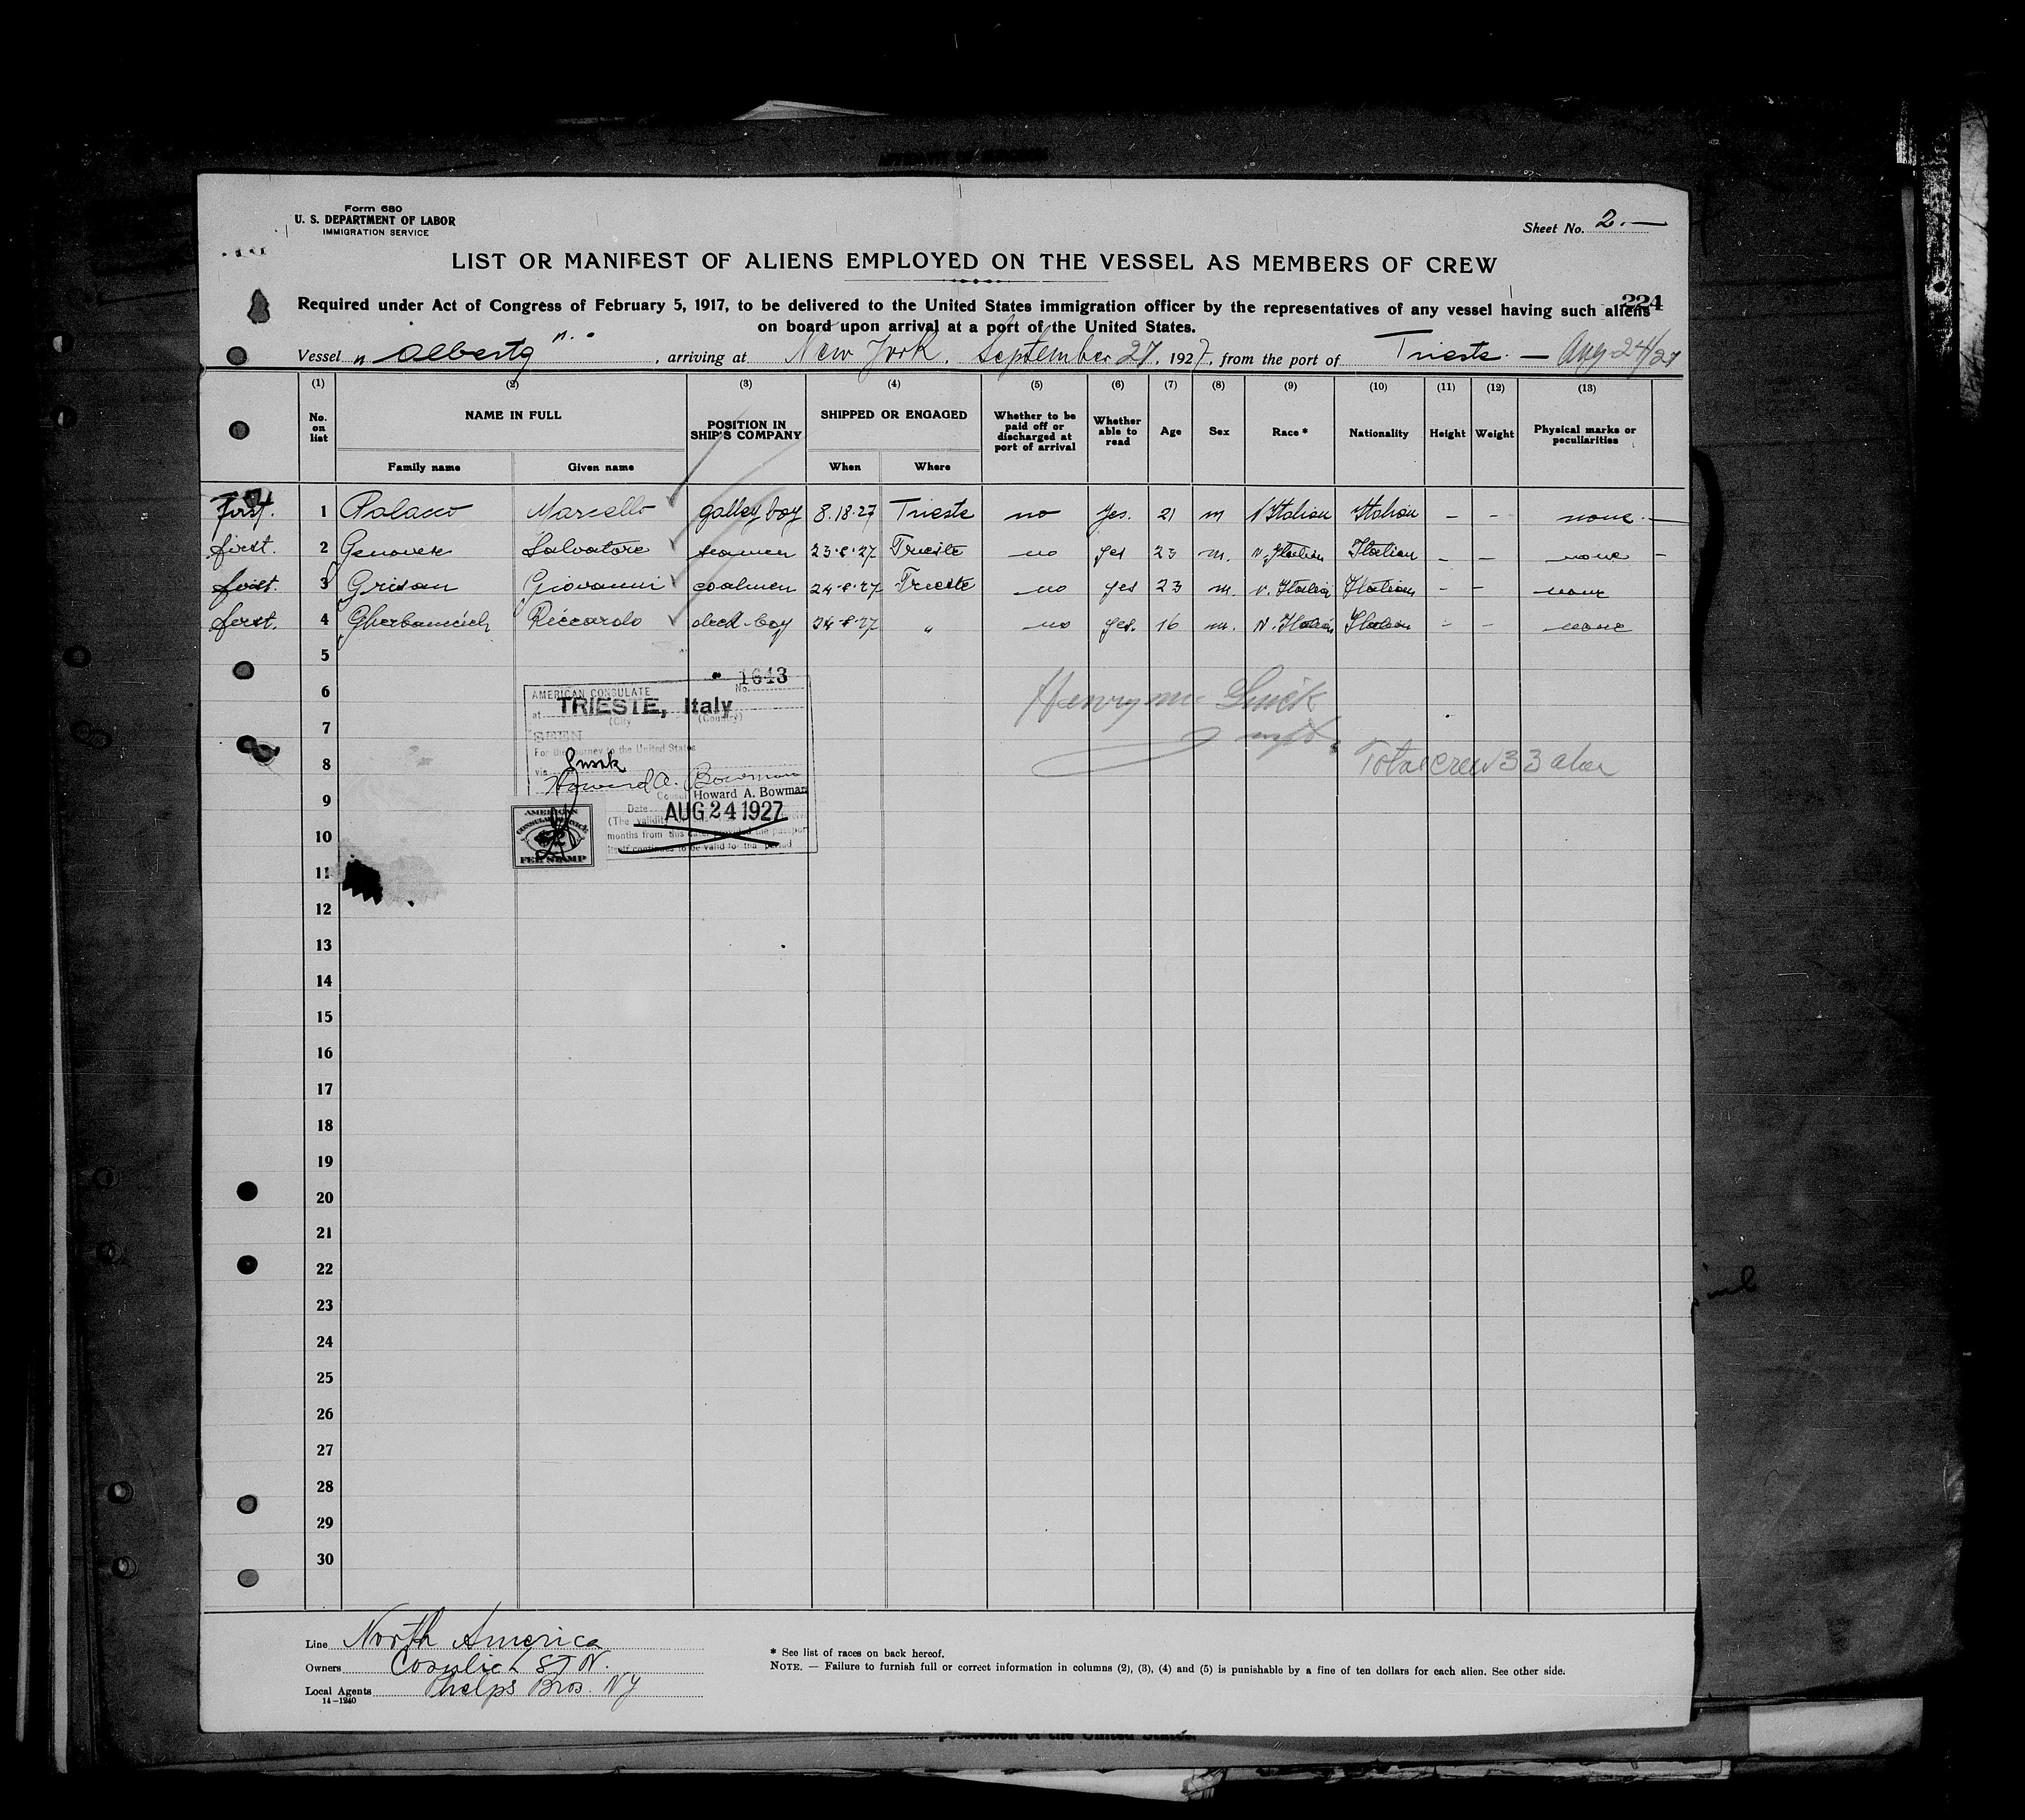 Form 680
U. S. DEPARTMENT OF LABOR
IMMIGRATION SERVICE
Sheet No. 2.—
LIST OR MANIFEST OF ALIENS EMPLOYED ON THE VESSEL AS MEMBERS OF CREW
224
Required under Act of Congress of February 5, 1917, to be delivered to the United States immigration officer by the representatives of any vessel having such aliens
on board upon arrival at a port of the United States.
Vessel „ Alberta ", arriving at New York. September 27, 1927, from the port of Trieste. — Aug 24/27
(1) (2) (3) (4) (5) (6) (7) (8) (9) (10) (11) (12) (13)
No. on list NAME IN FULL POSITION IN SHIP'S COMPANY SHIPPED OR ENGAGED Whether to be paid off or discharged at port of arrival Whether able to read Age Sex Race * Nationality Height Weight Physical marks or peculiarities
Family name Given name When Where
First. 1 Marcello galley boy 8.18.27 Trieste no yes. 21 m N Italian Italian – – none. —
first. 2 Genovese Salvatore seamen 23·8·27 Trieste no yes 23 m. N. Italian Italian – – none –
first. 3 Grison Giovanni coalmen 24·8·27 Trieste no yes 23 m. N. Italian Italian – – none
first. 4 Riccardo deck-boy 24·8·27 „ no yes. 16 m. N. Italian Italian – – none
5
6
7
8
9
10
11
12
13
14
15
16
17
18
19
20
21
22
23
24
25
26
27
28
29
30
No. 1643
AMERICAN CONSULATE
at TRIESTE, Italy
(City (Country)
SEEN
For the journey to the United States
via
Howard A. Bowman
Consul Howard A. Bowman
Date AUG 24 1927
(The validity
months from this date provided the passport
itself continues to be valid for that period
AMERICAN
CONSULAR SERVICE
FEE STAMP
Henry Mc
Total crew 33
Line North America
Owners Cosulich S T N.
Local Agents Phelps Bros. NY
14—1240
* See list of races on back hereof.
NOTE. — Failure to furnish full or correct information in columns (2), (3), (4) and (5) is punishable by a fine of ten dollars for each alien. See other side.
possession of the United States.